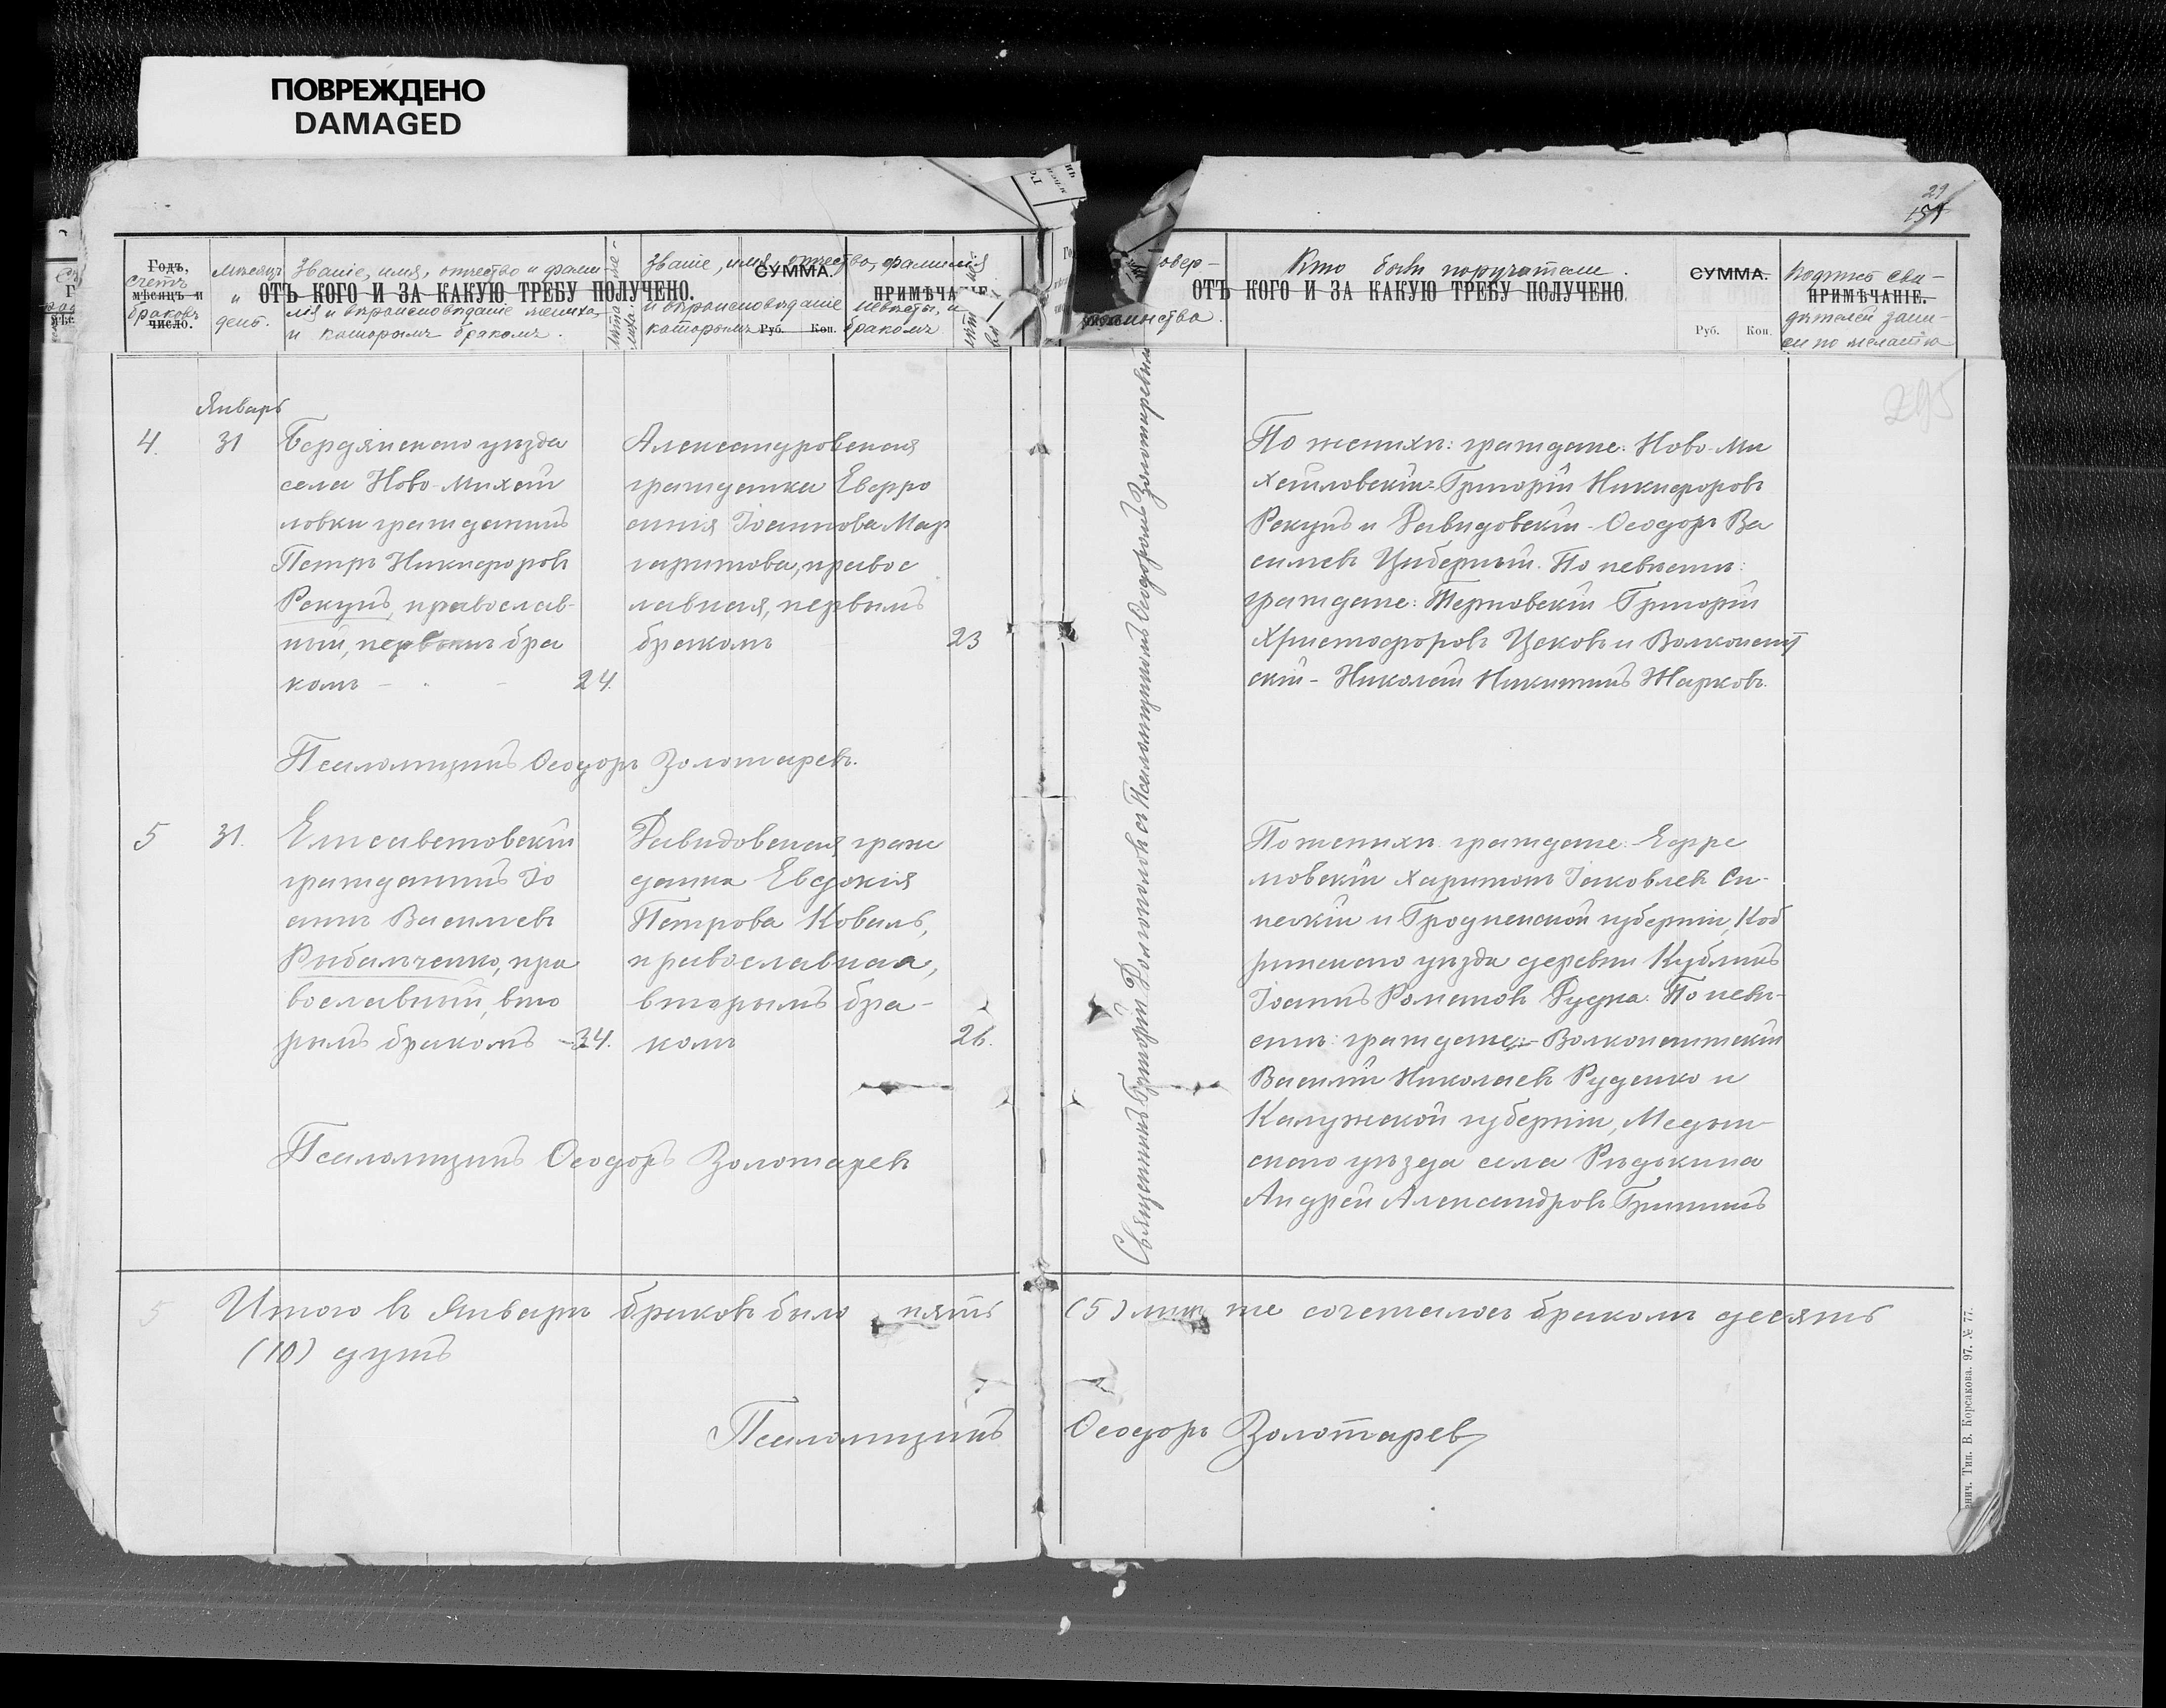 ПОВРЕЖДЕНО
DAMAGED
29
151
Годъ,
мѣсяцъ и
число.
Счетъ
браковъ
Мѣсяцъ
и
день.
ОТЪ КОГО И ЗА КАКУЮ ТРЕБУ ПОЛУЧЕНО.
Званіе, имя, отчество и фами-
лія и вѣроисповѣданіе жениха,
и которымъ бракомъ.
СУММА.
Руб. Коп.
Званіе, имя, отчество, фамилія
и вѣроисповѣданіе невѣсты, и
которымъ бракомъ
ПРИМѢЧА
овер-
таинства.
ОТЪ КОГО И ЗА КАКУЮ ТРЕБУ ПОЛУЧЕНО.
Кто были поручатели.
СУММА.
Руб. Коп.
ПРИМѢЧАНІЕ.
Подпись сви-
дѣтелей запи-
си по желанію
295
Январь
4. 31
Бердянскаго уѣзда
села Ново-Михай
ловки гражданинъ
Петръ Никифоровъ
Рекунъ, православ-
ный, первымъ бра
комъ - 24.
Александровская
гражданка Евфро
синія Іоаннова Мар
гаритова, правос
лавная, первымъ
бракомъ 23
Священникъ Григорій съ Псаломщикомъ Ѳеодоромъ Золотаревымъ
По женихѣ: граждане: Ново-Ми
хайловскій - Григорій Никифоровъ
Рекунъ и Давидовскій - Ѳеодоръ Ва
сильевъ Циберный. По невѣстѣ:
граждане: Терновскій Григорій
Христофоровъ Цековъ и Волконешт
скій - Николай Никитинъ Жарковъ.
Псаломщикъ Ѳеодоръ Золотаревъ.
5 31.
Елисаветовскій
гражданинъ Іо
аннъ Васильевъ
Рыбальченко, пра
вославный, вто
рымъ бракомъ - 34.
Давидовская, граж
данка Евдокія
Петрова Коваль,
православная,
вторымъ бра-
комъ 26.
По женихѣ граждане: - Ефре
мовскій Харитонъ Іаковлевъ Си-
нелкій и Гродненской губерніи, Коб
ринскаго уѣзда деревни Кублинъ
Іоаннъ Романовъ Дудка. По невѣ-
стѣ: граждане: - Волконештскій
Василій Николаевъ Руденко и
Калужской губерніи, Медын-
скаго уѣзда села Рѣдькина
Андрей Александровъ Гришинъ
Псаломщикъ Ѳеодоръ Золотаревъ
5 Итого въ Январѣ браковъ было пять (5) лицъ же сочеталось бракомъ десять
(10) душъ
Псаломщикъ Ѳеодоръ Золотаревъ
Тип. В. Корсакова. 97. № 77.